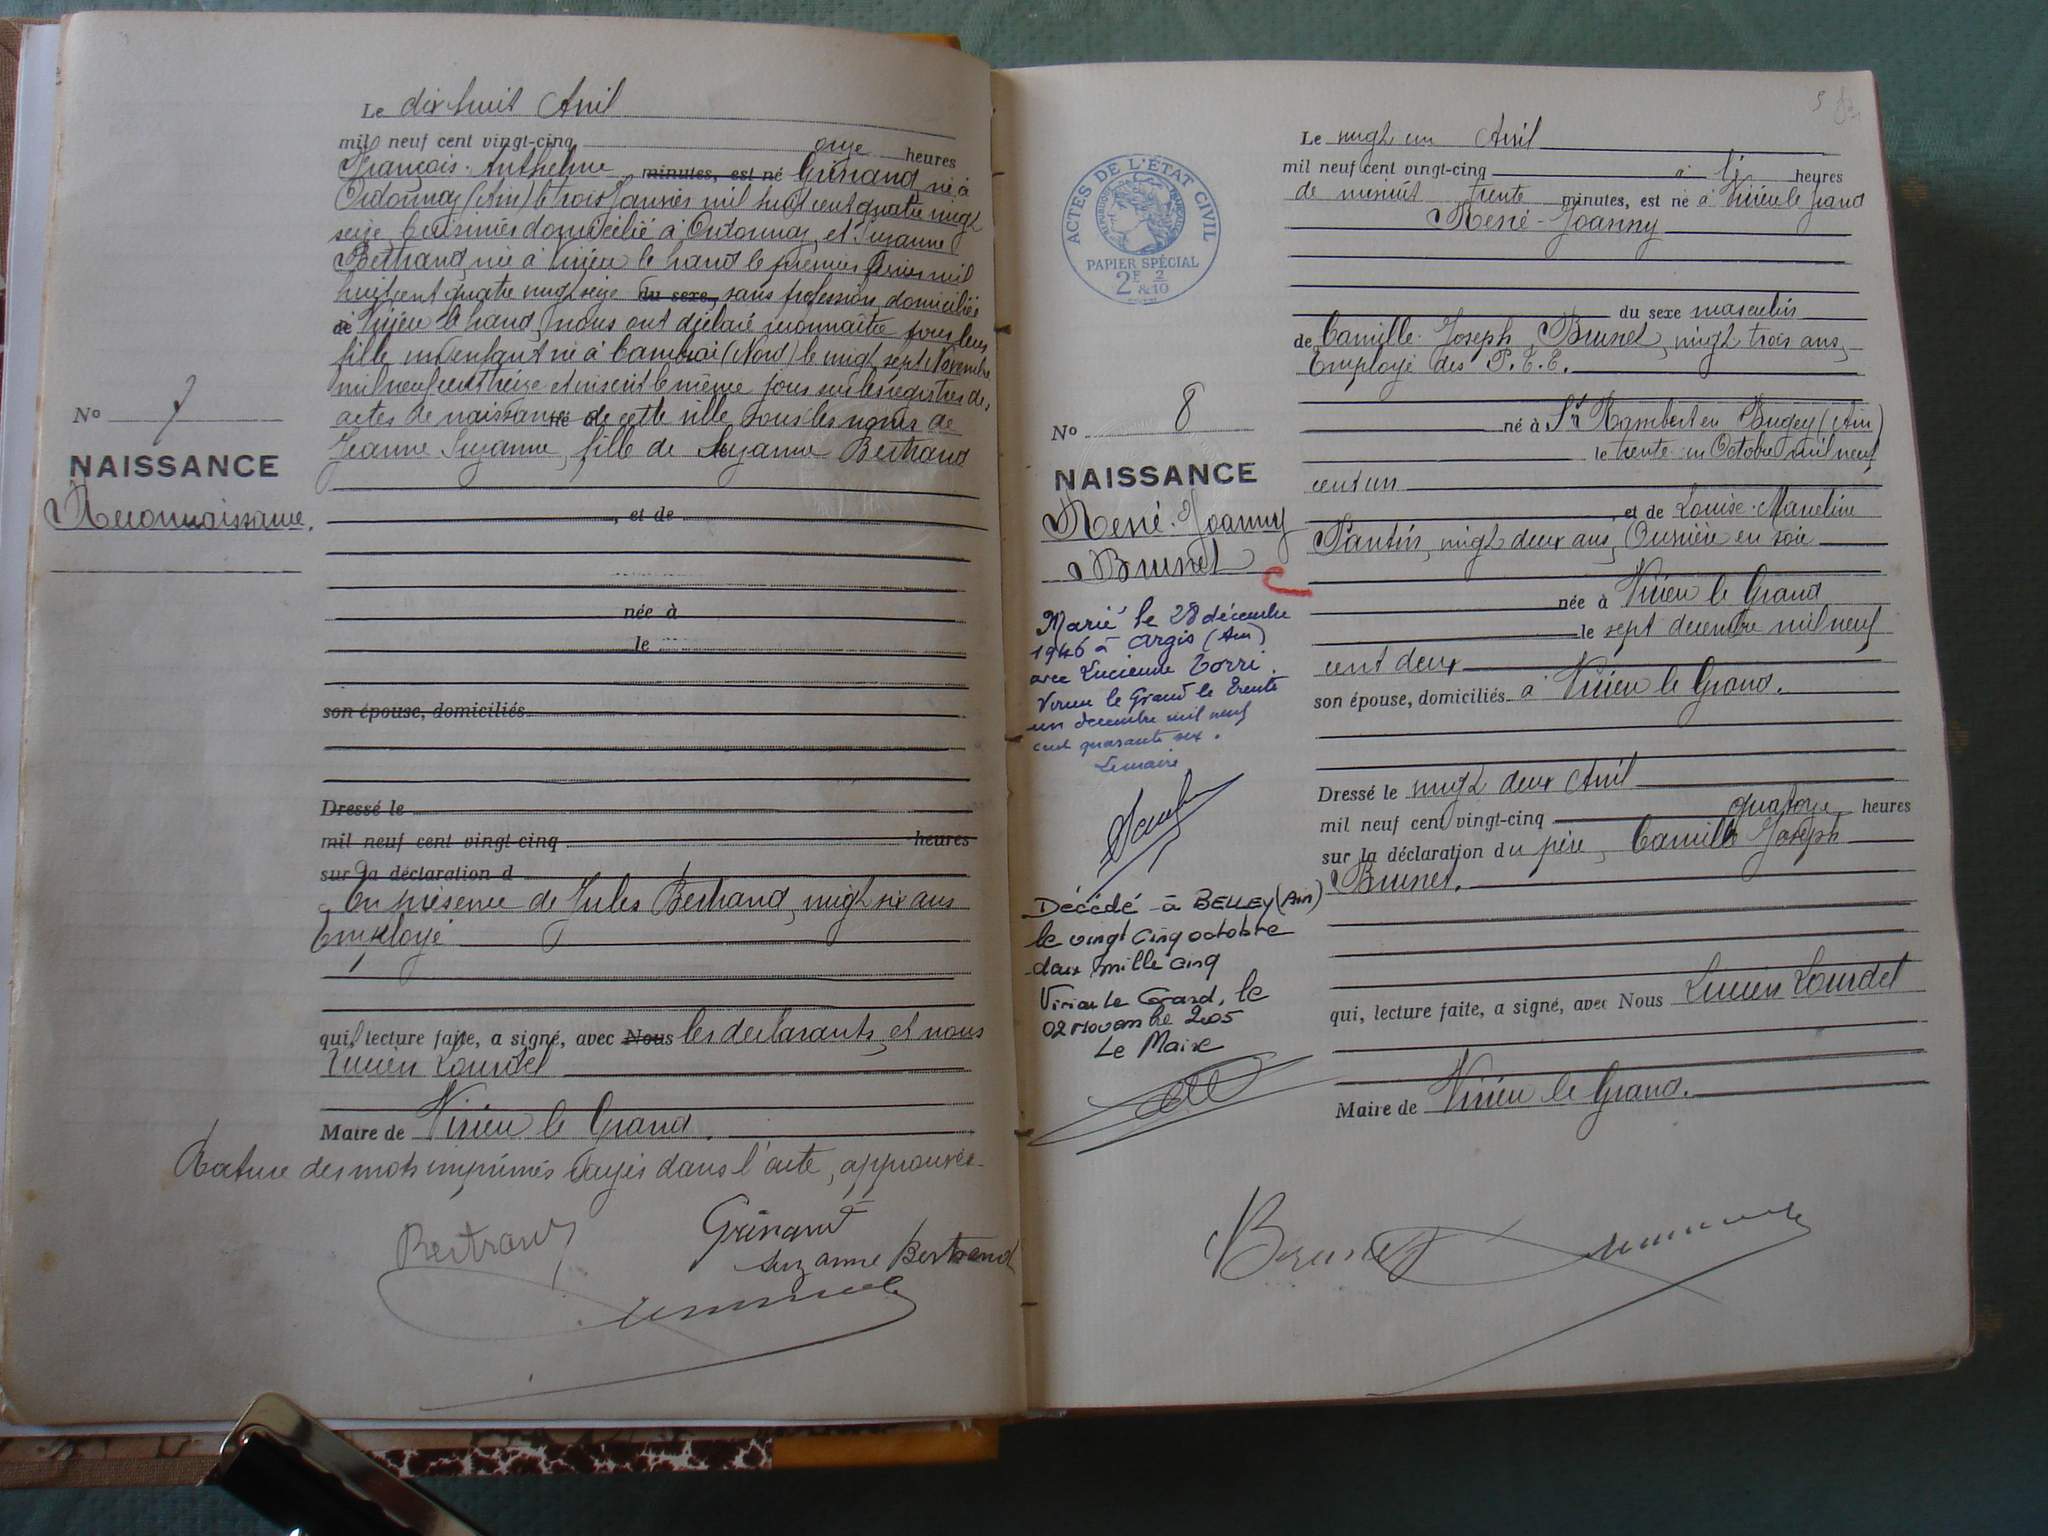 Le dix huit Avril
mil neuf cent vingt-cinq onze heures
François Anthelme minutes, est né Grinand, né à
Ordonnaz (Ain) le trois Janvier mil huit cent quatre vingt
seize Cuisinier domicilié à Ordonnaz et Suzanne
Bertrand, née à Virieu le Grand le premier Février mil
huit cent quatre vingt seize du sexe sans profession, domiciliée
de à Virieu le Grand, nous ont déclaré reconnaître pour leur
fille, un enfant né à Cambrai (Nord) le vingt sept Novembre
mil neuf cent treize et inscrit le même jour sur les registres des
actes de naissance de cette ville sous les noms de
Jeanne Suzanne, fille de Suzanne Bertrand
No 7
NAISSANCE
Reconnaissance.
, et de
née à
le
son épouse, domiciliés
Dressé le
mil neuf cent vingt-cinq heures
sur la déclaration d
En présence de Jules Bertrand, vingt six ans
Employé
qui, lecture faite, a signé, avec Nous les déclarants, et nous
Lucien Lourdel
Maire de Virieu le Grand.
Rature des mots imprimés rayés dans l'acte, approuvée
Bertrand
Grinand
Suzanne Bertrand
5
Le vingt un Avril
mil neuf cent vingt-cinq à heures
de minuit trente minutes, est né à Virieu le Grand
René-Joanny
du sexe masculin
de Camille Joseph Brunet, vingt trois ans,
Employé des P.T.T.
né à St Rambert en Bugey (Ain)
le trente un Octobre mil neuf
cent un
et de Louise Manetine
Pantin, vingt deux ans, Ouvrière en soie
née à Virieu le Grand
le sept décembre mil neuf
cent deux
son épouse, domiciliés à Virieu le Grand.
Dressé le vingt deux Avril
mil neuf cent vingt-cinq quatorze heures
sur la déclaration du père, Camille Joseph
Brunet.
qui, lecture faite, a signé, avec Nous Lucien Lourdel
Maire de Virieu le Grand.
ACTES DE L'ÉTAT CIVIL
RÉPUBLIQUE FRANÇAISE
PAPIER SPÉCIAL
2F & 2/10
No 8
NAISSANCE
René-Joanny
Brunet
Marié le 28 décembre
1946 à Argis (Ain)
avec Lucienne Torri.
Virieu le Grand le trente
un décembre mil neuf
cent quarante six.
Le maire
Décédé à BELLEY (Ain)
le vingt cinq octobre
deux mille cinq
Virieu le Grand, le
02 novembre 2005
Le Maire
Brunet